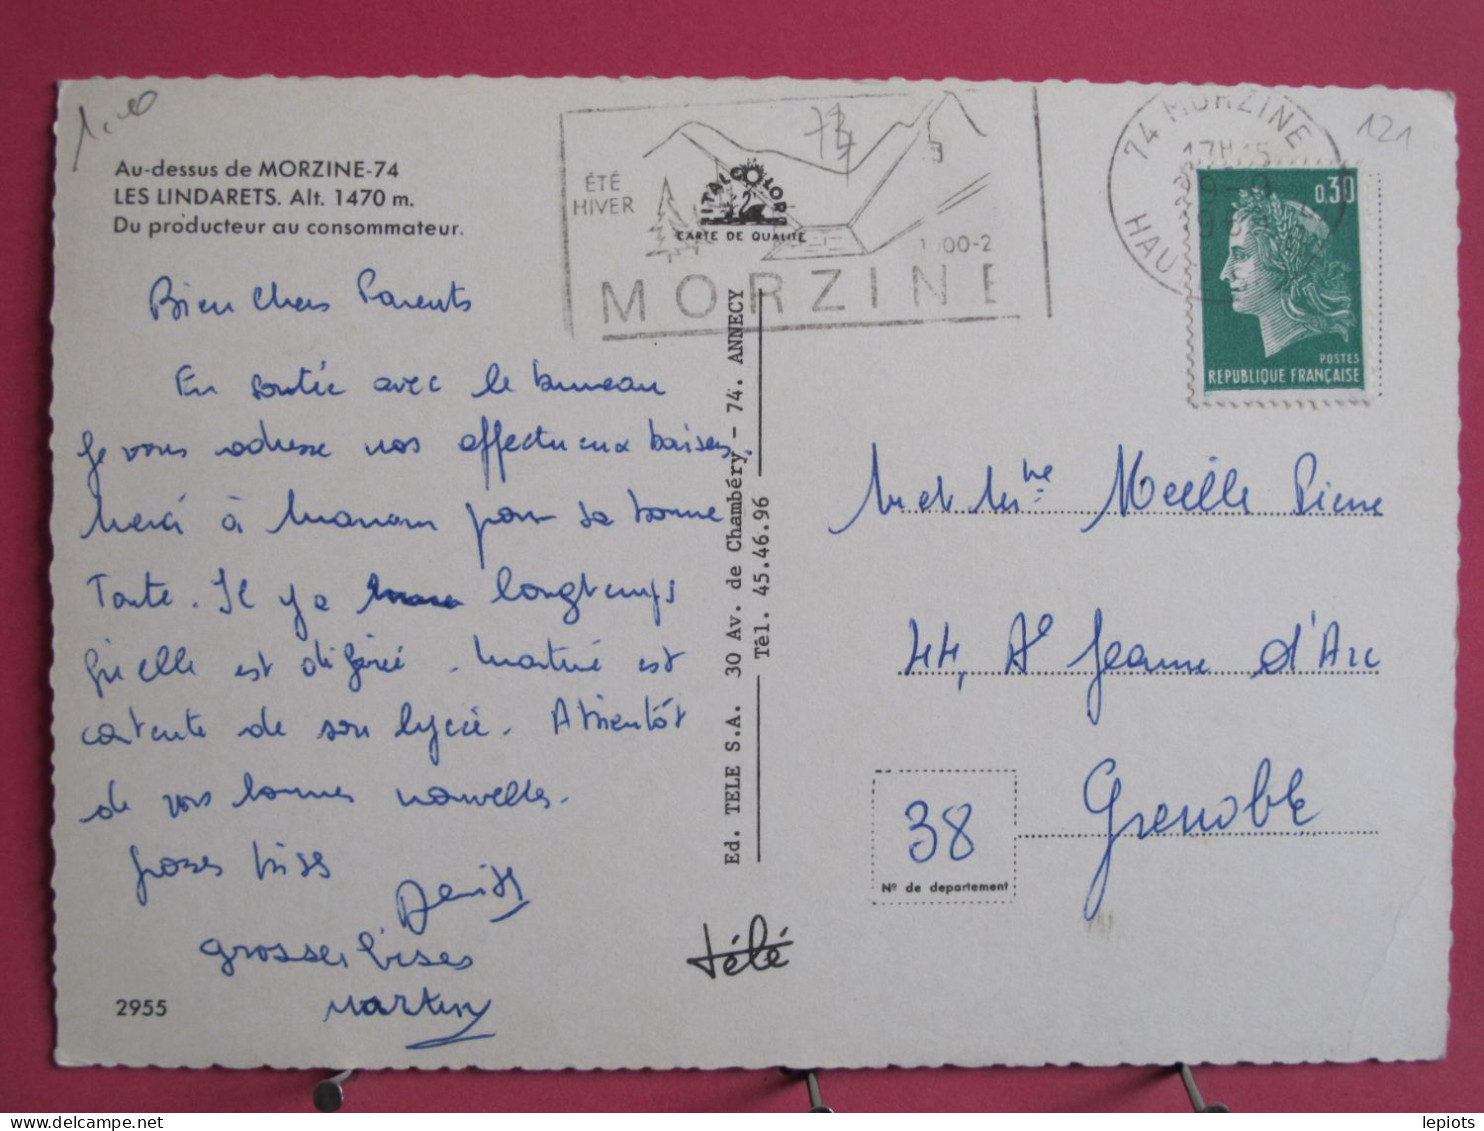 1,00
121
Au-dessus de MORZINE-74
LES LINDARETS. Alt. 1470 m.
Du producteur au consommateur.
ÉTÉ
HIVER
ITALCOLOR
CARTE DE QUALITE
MORZINE
74 MORZINE
17H
HAUTE
0,30
POSTES
REPUBLIQUE FRANÇAISE
Bien Chers Parents
En sortie avec le bureau
Je vous adresse nos affectueux baisers,
Merci à Maman pour sa bonne
Tarte. Il y a longtemps
qu'elle est digérée. Martine est
contente de son lycée. A bientôt
de vos bonnes nouvelles.
Grosses bises
grosses bises
Martine
2955
Ed. TELE S.A. 30 Av. de Chambéry - 74. ANNECY
Tèl. 45.46.96
télé
M et Mme Meille Pierre
44, Av Jeanne d'Arc
38
Grenoble
Nº de departement
lepiots